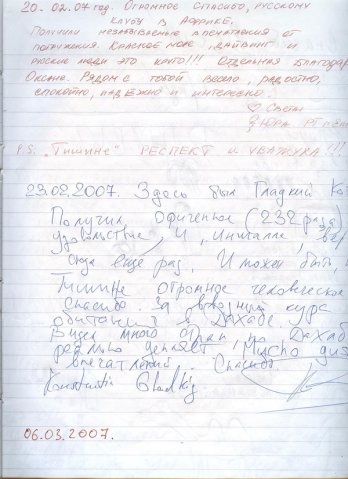 20.02.07 год. Огромное спасибо, русскому
клубу в Африке.
Получили незабываемые впечатления от
погружения. Красное море, дайвинг и
русские люди это круто!!! Отдельная благодар
Оксане. Рядом с тобой весело, радостно,
спокойно, надёжно и интересно.
Света
Юра
P.S. „Тишине" РЕСПЕКТ и УВАЖУХА!!!
23.02.2007. Здесь был Гладкий Ко
Получил офигенное (232 раза)
удовольствие, и, иншалла, вер
сюда ещё раз. И может быть, и
Тишине огромное человеческое
Спасибо за вводный курс
обитания в Дахабе.
Видел много стран, но Дахаб
реально цепляет, Mucho gus
впечатлений. Спасибо
Konstantin Gladkiy
06.03.2007.